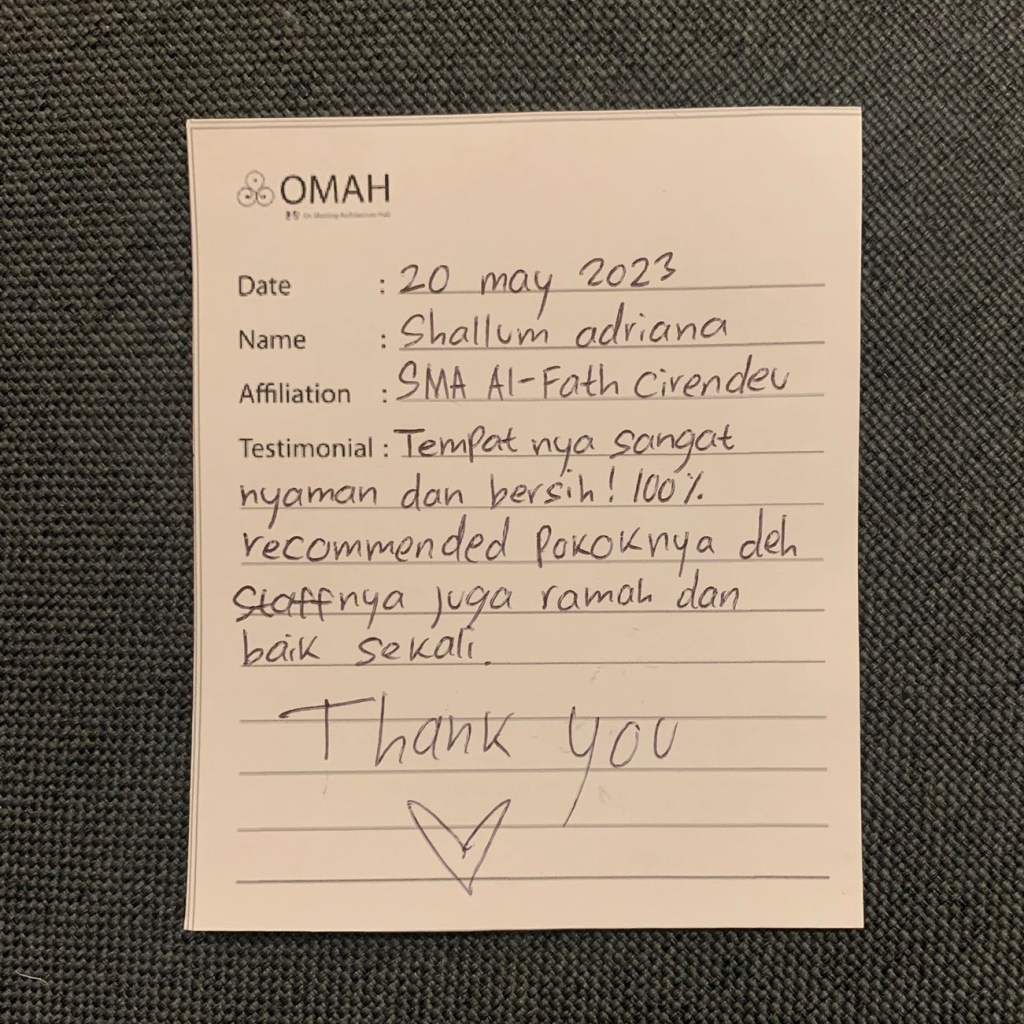 OMAH
On Meeting Architecture Hub
Date : 20 may 2023
Name : Shallum adriana
Affiliation : SMA Al-Fath Cirendeu
Testimonial : Tempat nya sangat
nyaman dan bersih! 100%
recommended pokoknya deh
Staffnya juga ramah dan
baik sekali.
Thank you